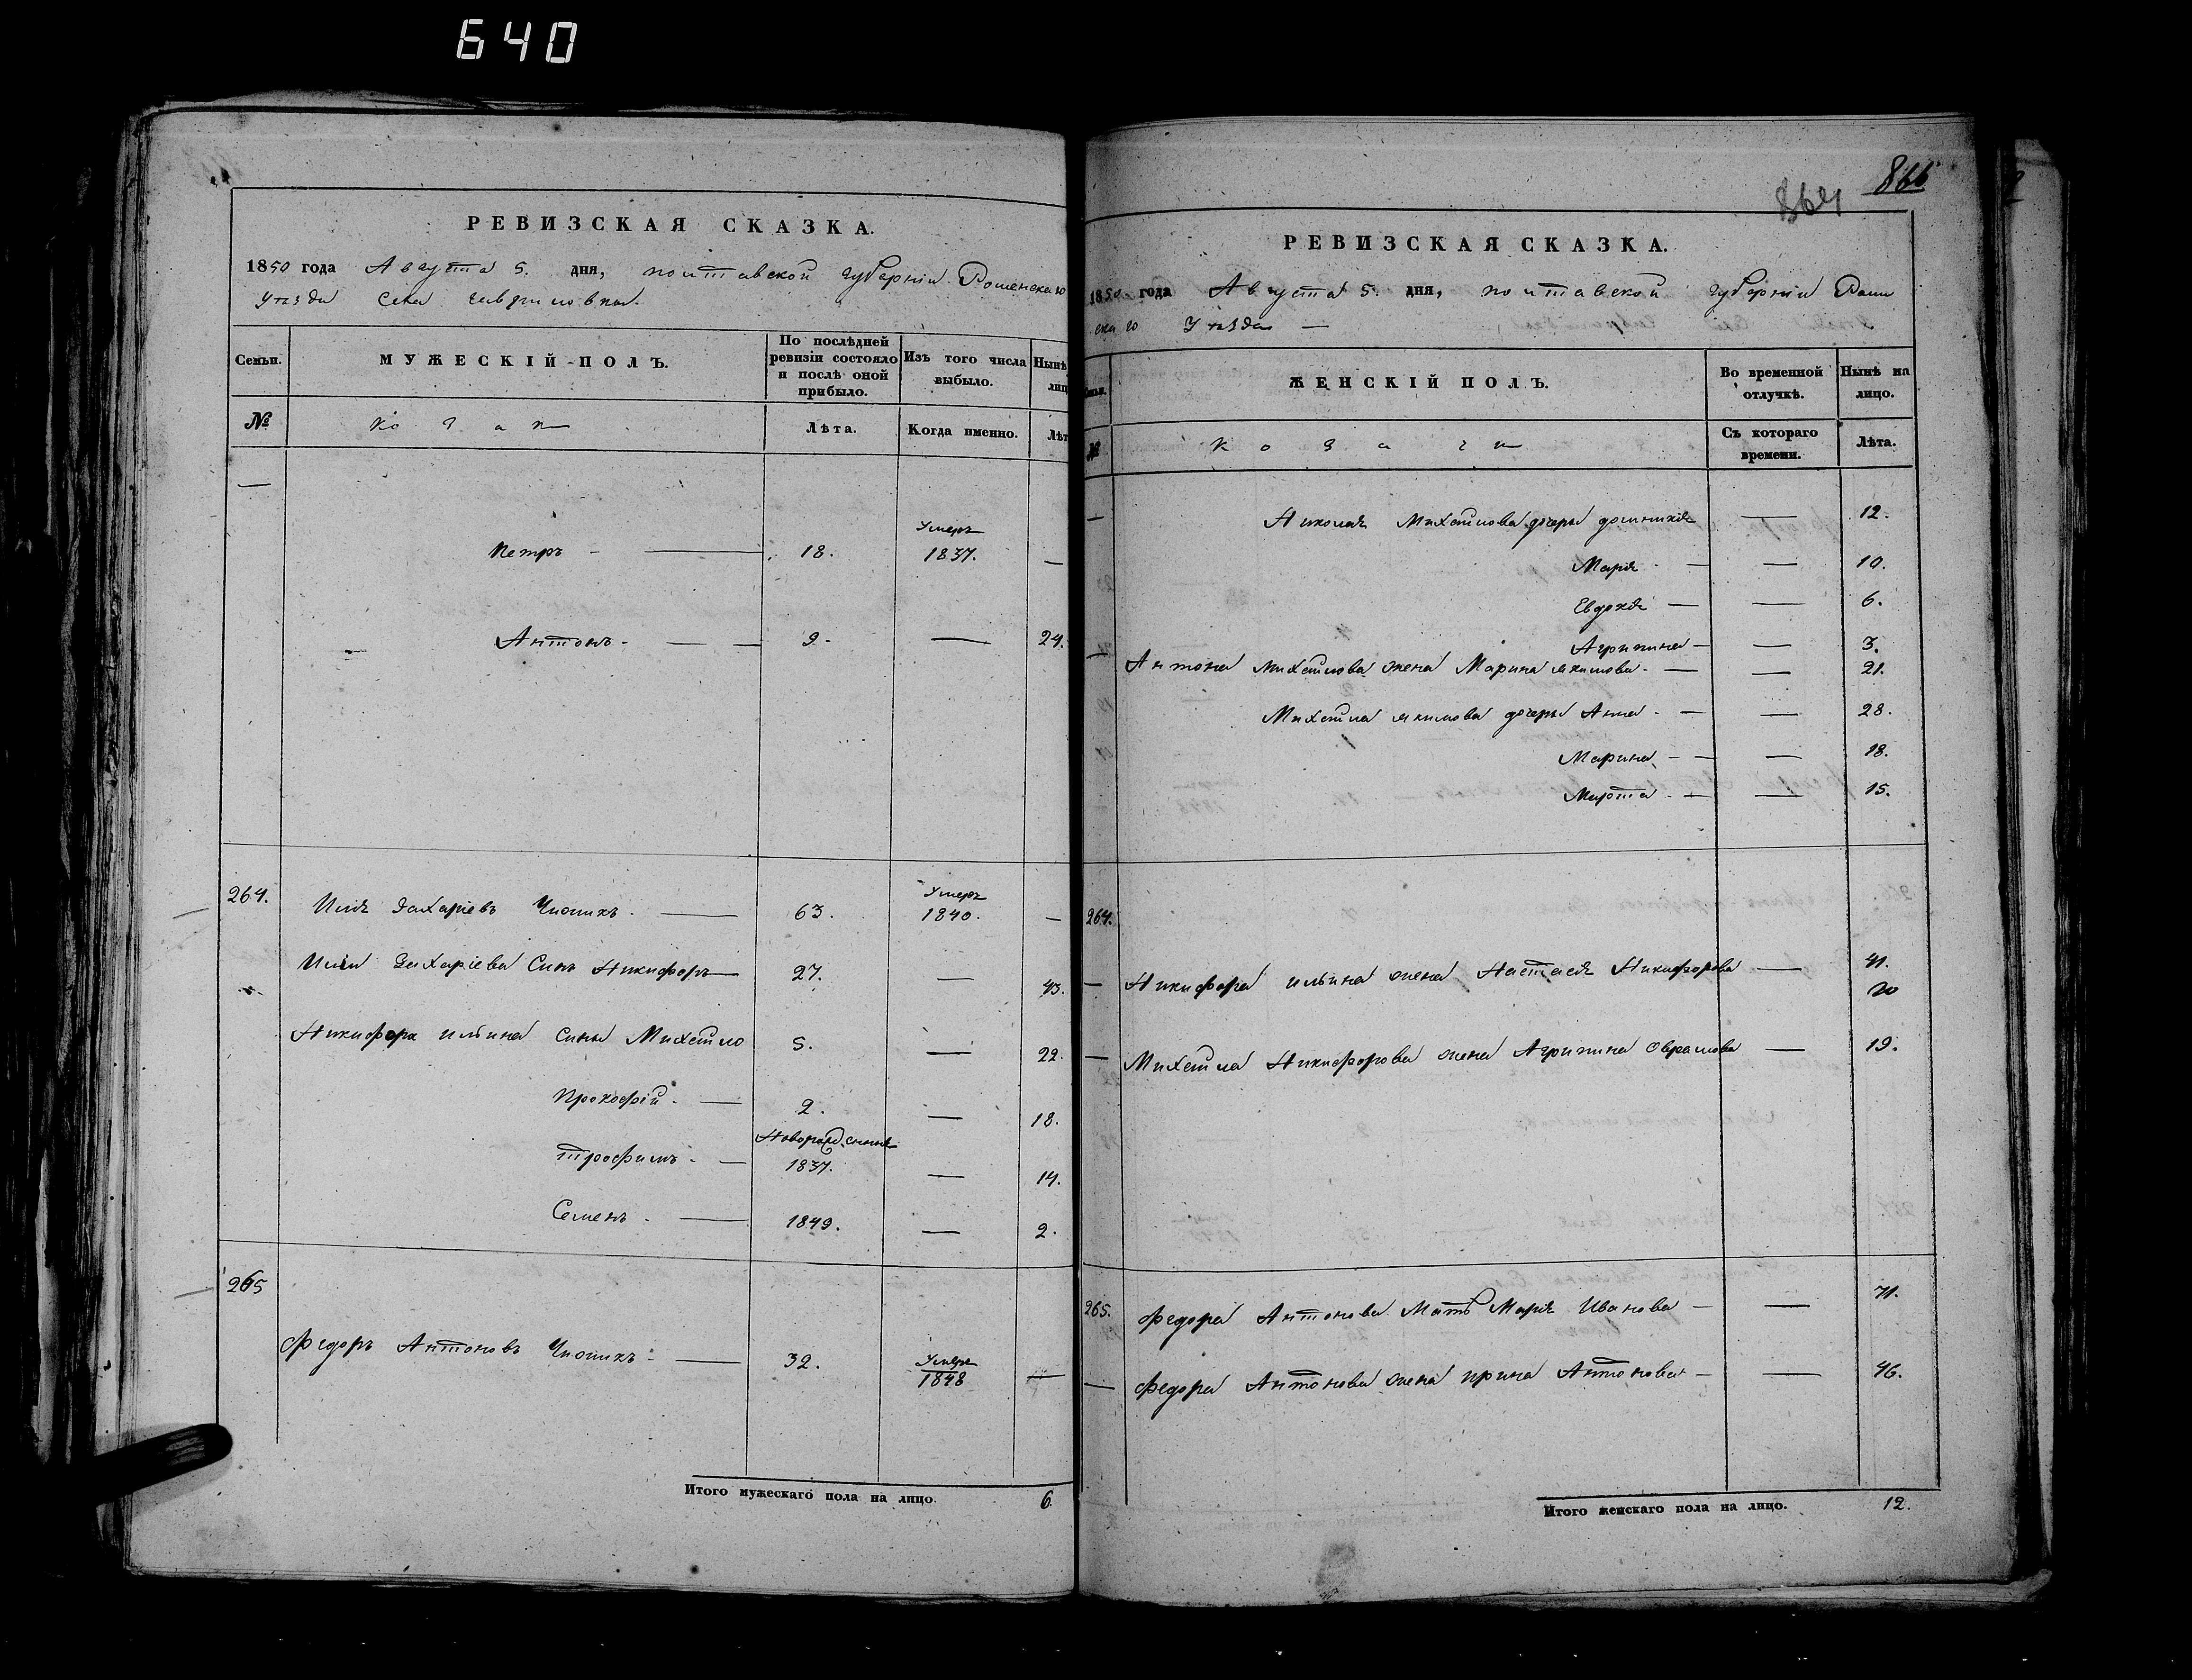 640
РЕВИЗСКАЯ СКАЗКА.
1850 года Августа 5. дня, полтавской губерніи Роменскаго
Уѣзда Села
Семьи. МУЖЕСКІЙ ПОЛЪ. По послѣдней ревизіи состояло и послѣ оной прибыло. Изъ того числа выбыло. Нынѣ лиц
№ Козаки Лѣта. Когда именно. Лѣт
—
Петръ — 18. Умеръ 1837. —
Антонъ — 9. — 24.
264. Илія Захаріевъ 63. Умеръ 1840. —
Иліи Захаріева Сынъ Никифоръ 27. — 43.
Никифора ильина сыны Михайло 5. — 22.
Прокофій — 2. — 18.
Трофимъ — Новорожденные 1837. — 14.
Семенъ — 1849. — 2.
265
Федоръ Антоновъ 32. Умеръ 1848 —
Итого мужескаго пола на лицо. 6.
864 866
РЕВИЗСКАЯ СКАЗКА.
1850 года Августа 5. дня, полтавской губерніи Роменскаго Уѣзда —
Семьи. ЖЕНСКІЙ ПОЛЪ. Во временной отлучкѣ. Нынѣ на лицо.
№ Козачки Съ котораго времени. Лѣта.
— Николая Михайлова дочери — 12.
Марія — — 10.
Евдокія — — 6.
Агрипина — — 3.
— Антона Михайлова жена Марина якимова — — 21.
Михайла якимова дочери Анна — — 28.
Марина — — 18.
Марфа — — 15.
264.
— Никифора ильина жена Настасія Никифорова — 41.
— Михайла Никифорова жена Агрипина Овраамова — 19.
265. Федора Антонова Мать Марія Иванова — — 71.
— Федора Антонова жена ирина Антонова — — 46.
Итого женскаго пола на лицо. 12.